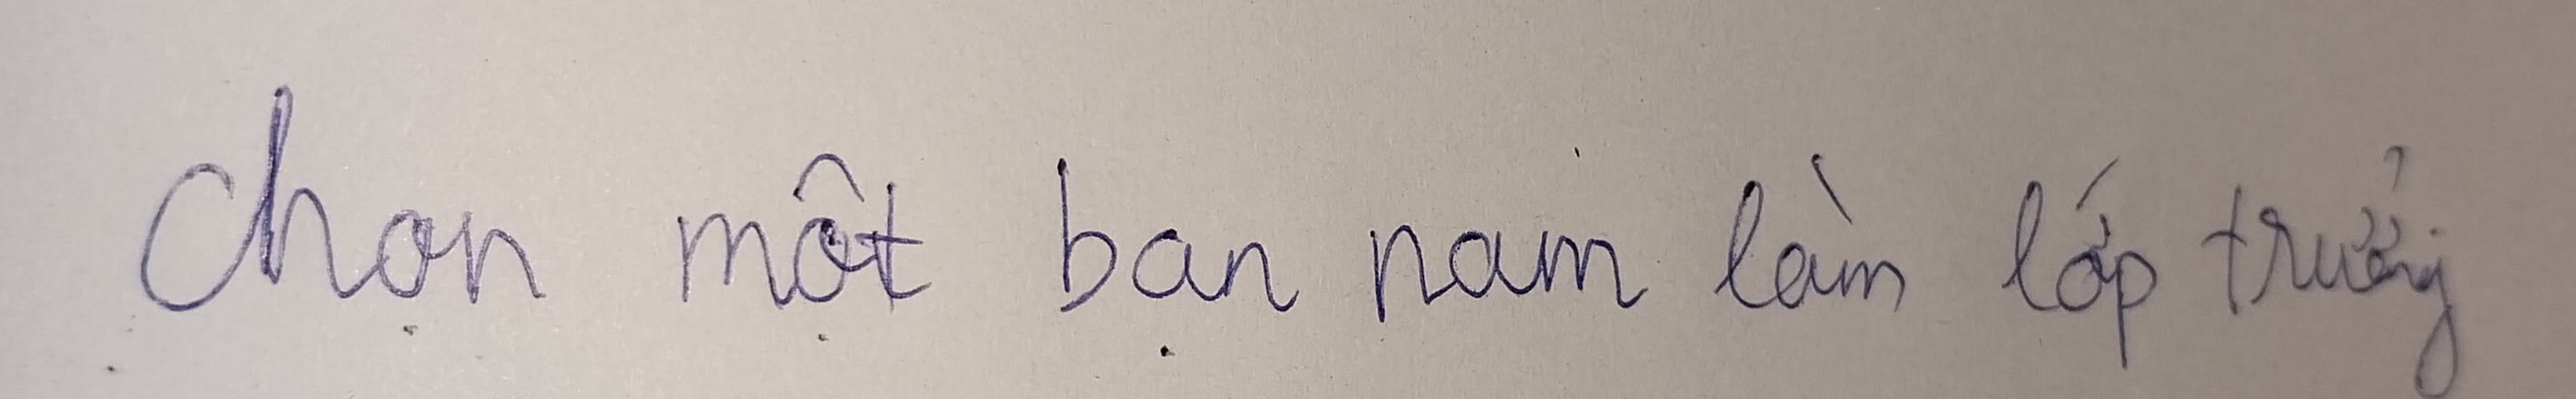 Chọn một bạn nam làm lớp trưởng